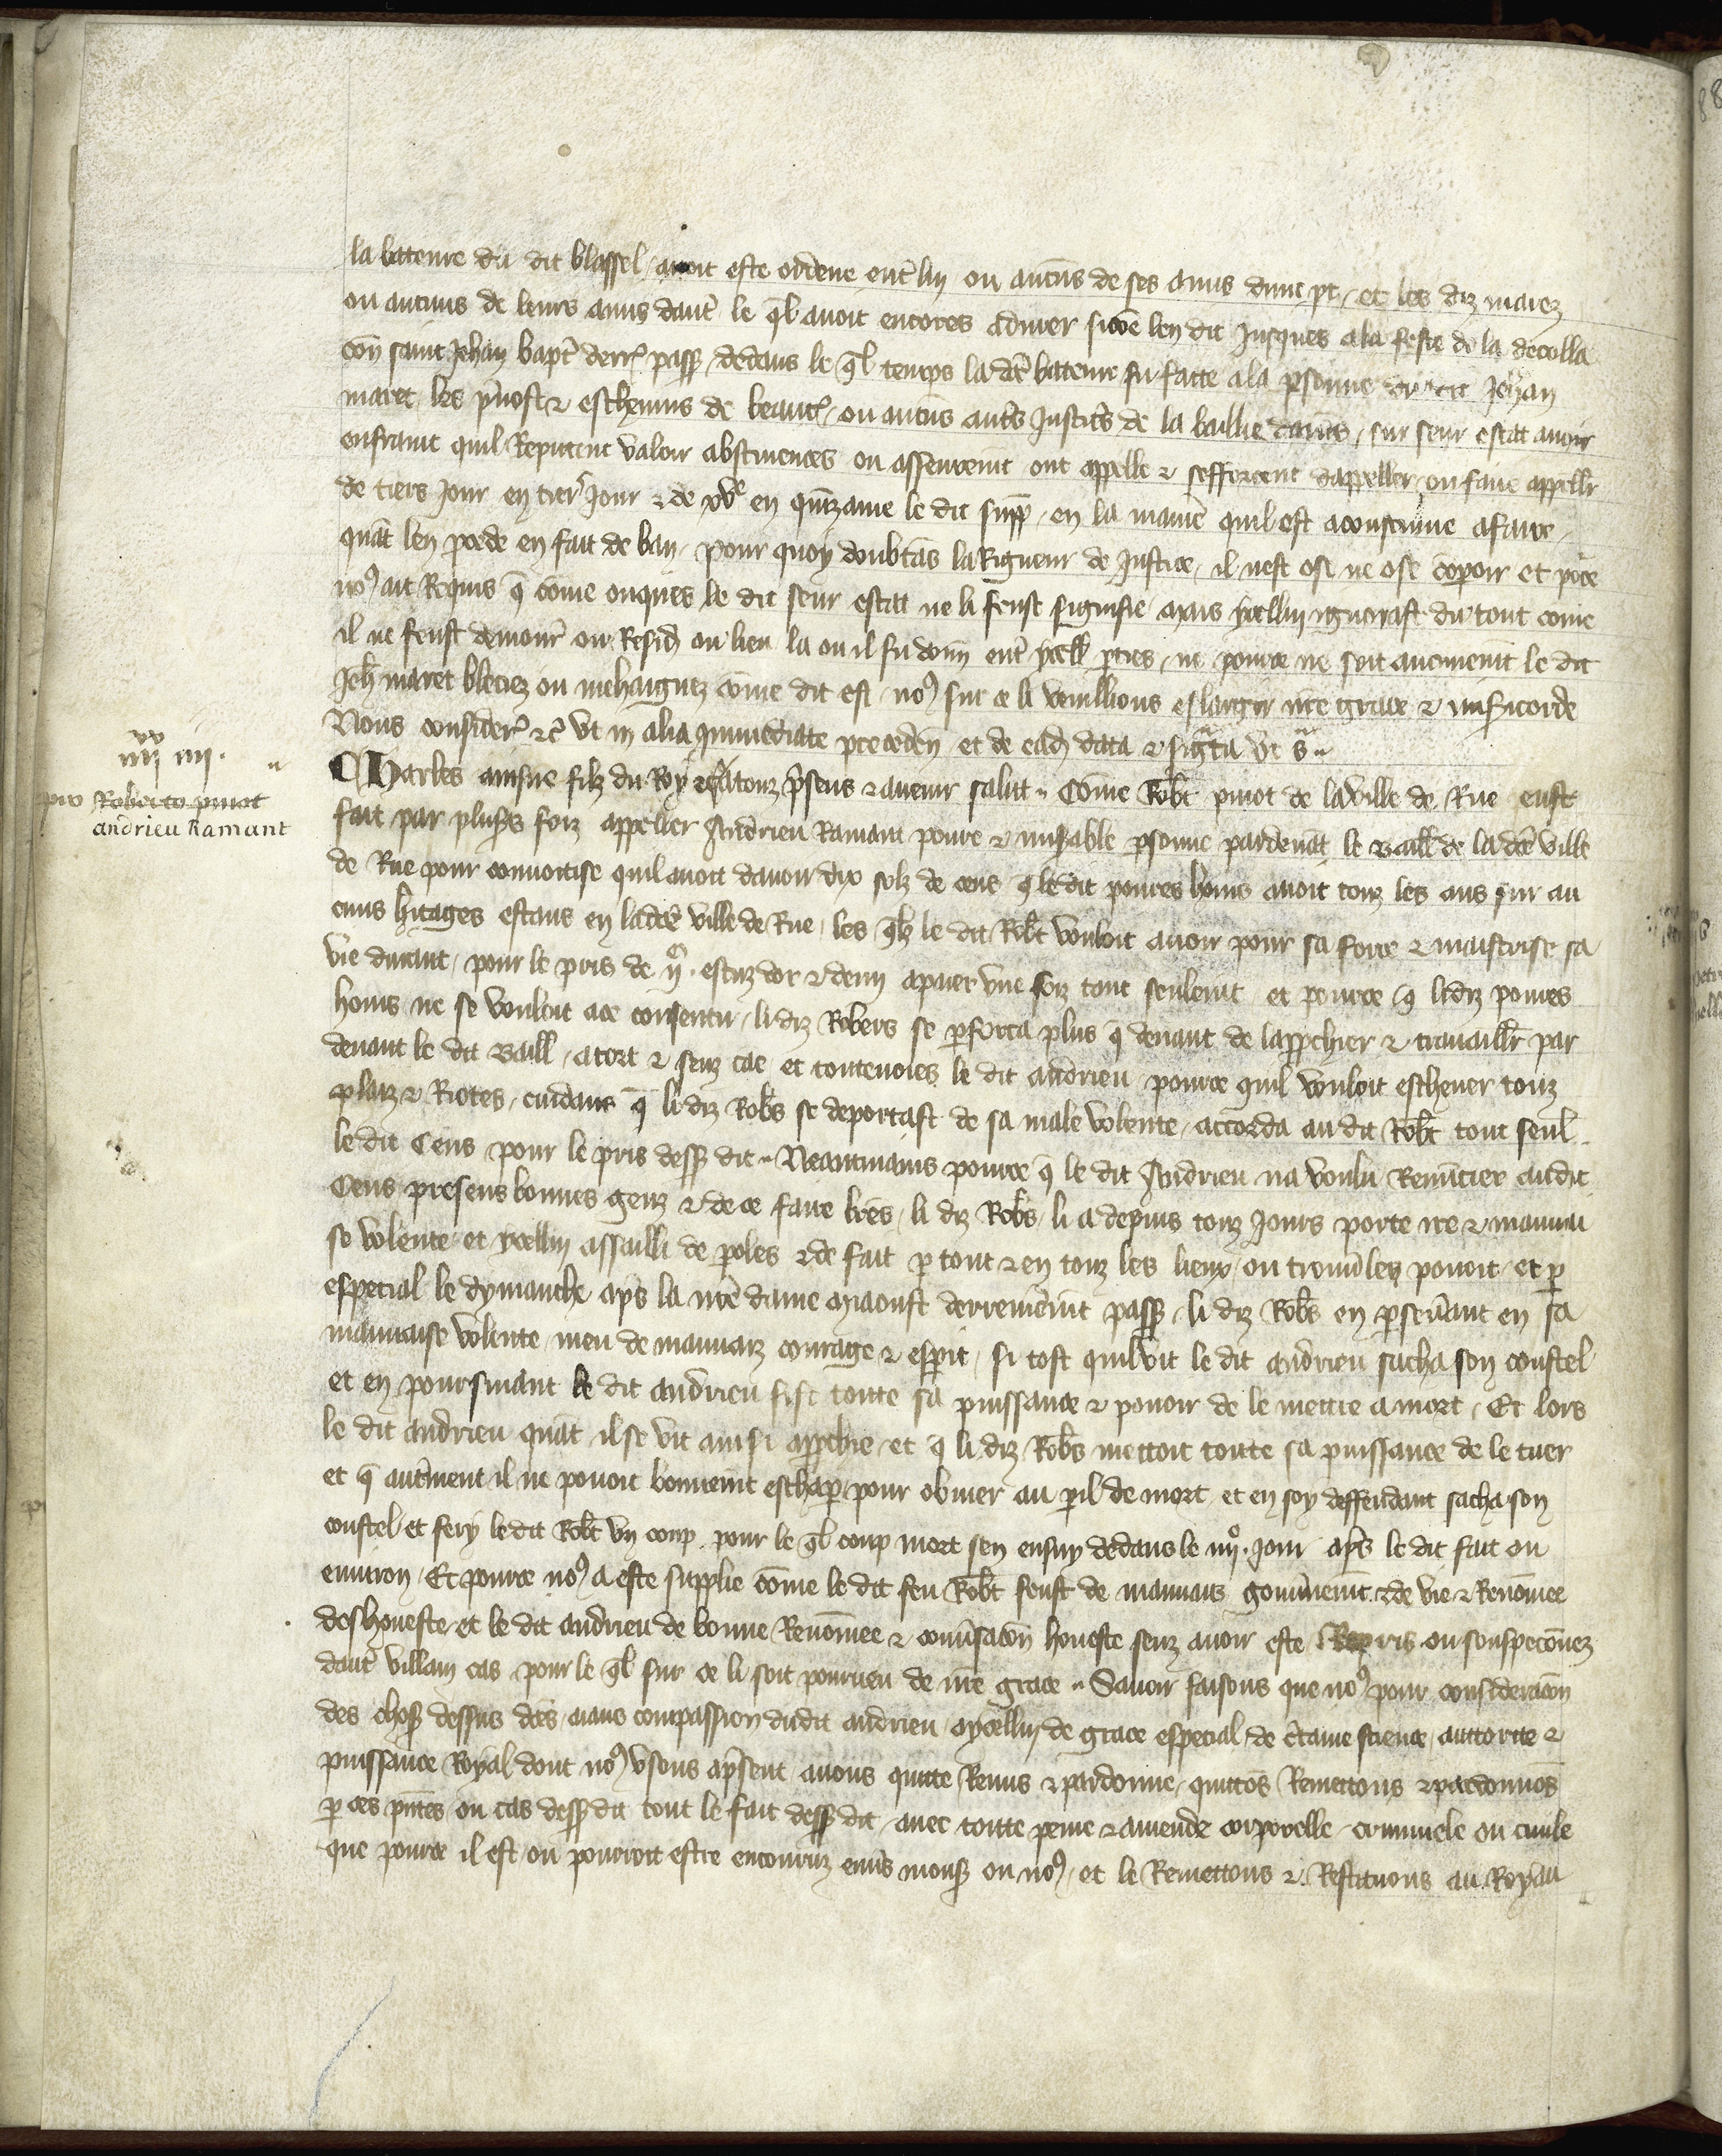 la bateure du dit blassel / avoit este ordene entͬ luy ou aucūs de ses amis dune pͭ / et les diz marez
ou aucuns de leurs amis dautͬ le q̄l avoit encores a durer sicōe len dit jusques a la feste de la decolla
con̄ saint Jehan bapt̄ derr̄ pass̄ / dedans le q̄l temps la dc̄e bateure fu faite a la ꝑsonne du dit Jehan
maret les p̄vost ⁊ eschevins de beauq̄ / ou aucūs aut̄s justic̄s de la baillie damiēs / sur seur estat avoir
enfraint quil reputent valoir abstinences ou asseurem̄t ont appelle ⁊ sefforcent dappeller / ou faire appell̄r
de tiers jour en tier jour ⁊ de xvᵉ en quīzaine le dit supp̄ / en la manie͂ quil est acoustume a faire /
quāt len ꝓcede en fait de ban / pour quoy doubtās la Rigueur de justice / il nest ose ne ose cōparoir et poͬce
noꝰ ait Requis q̄ cōme onques le dit seur estat ne li feust signifie / mais ycellui ignorast du tout cōme
il ne feust demourͬ ou Resid̄ ou lieu la ou il fu donn̄ entͬ ycell̄ ꝑties / ne pource ne soit aucunem̄t le dit
Jeh̄ maret bleciez ou mehaigniez cōme dit est / noꝰ sur ce li veuillions eslargir nr̄e grace ⁊ mis̄icorde
Nous considerͬ ⁊c̄ ut in alia immediate precedeñ et de ead̄ data ⁊ sig̅ta ut s͞a
iiiiˣˣ iiii.
pro Roberto piuot
andrieu Ramant
Charles ainsne filz du Roy ⁊c̄ a touz p̄sens ⁊ avenir salut // Cōme Rob̄t piuot de la ville de Rue eust
fait par plus̄s foiz appeller Andrieu Ramant povre ⁊ mis̄able ꝑsonne pardevāt le Baill̄ de la dc̄e ville
de Rue pour convoitise quil avoit davoir dix solz de cens q̄ ledit povres homs avoit touz les ans sur au
cuns h̄itages estans en la dc̄e ville de Rue / les q̄lz le dit Rob̄t vouloit avoir pour sa force ⁊ maistrise sa
vie durant / pour le pris de escuz dor ⁊ demi a paier une foiz tant seulem̄t et pource q̄ lediz povres
homs ne se vouloit a ce consentir / li diz Robers se ꝑforca plus q̄ devant de lapꝓchier ⁊ travaill̄r par
devant le dit Baill̄ / a tort ⁊ senz cāe et toutevoies le dit andrieu pource quil vouloit eschever touz
plaiz ⁊ Riotes / cuidans q̄ li diz Rob̄s se deportast de sa male volente / accorda au dit Rob̄t tout seul
le dit Cens pour le pris dess̄ dit // Neantmains pource q̄ le dit Andrieu na voulu Renūcier audit
Cens presens bonnes genz ⁊ de ce faire lr̄es / li diz Rob̄s li a depuis touz jours porte ire ⁊ mauvai
se volente et ycellui assailli de ꝑoles ⁊ de fait ꝑ tout ⁊ en touz les lieux / ou trouv̄ les povoit / et ꝑ
especial le dymanche ap̄s la nr̄e dame miaoust derrenierem̄t pass̄ / li diz Rob̄s en ꝑsev̄ant en sa
mauvaise volente meu de mauvaiz courage ⁊ esp̄it / si tost quil vit le dit andrieu sacha son coustel
et en poursuiant le dit andrieu fist toute sa puissance ⁊ povoir de le mettre a mort / Et lors
le dit andrieu quāt il se vit ainsi apꝓchie / et q̄ li diz Rob̄s mettoit toute sa puissance de le tuer
et q̄ aut̄ment il ne povoit bonnem̄t eschaꝑ / pour obvier au ꝑil de mort et en soy deffendant sacha son
coustel et fery le dit Rob̄t un coup / pour le q̄l coup mort sen ensuy dedans le iiiiᵒ. jour ap̄s le dit fait ou
environ / Et pource noꝰ a este supplie cōme le dit feu Rob̄t feust de mauvais gouv̄nem̄t ⁊ de vie ⁊ Renōmee
deshoneste et le dit andrieu de bonne Renōmee ⁊ conv̄sacōn honeste senz avoir este Repris ou souspeconez
dautͬ villain cas pour le q̄l sur ce li soit pourveu de nr̄e grace // Savoir faisons que noꝰ pour consideracōn
des chos̄ dessus dc̄es / aians compassion dudit andrieu / a ycellui de grace especial / de c̄taine science / auctorite ⁊
puissance Royal dont noꝰ usons a p̄sent avons quitte Remis ⁊ pardonne / quittōs Remettons ⁊ pardonnōs
ꝑ ces pn̄tes ou cas dess̄ dit tout le fait dess̄ dit / avec toute peine ⁊ amende corporelle / criminele ou civile
que pource il est / ou pourroit estre encouruz env̄s mons̄ ou noꝰ / et le Remettons ⁊ Restituons au Royau